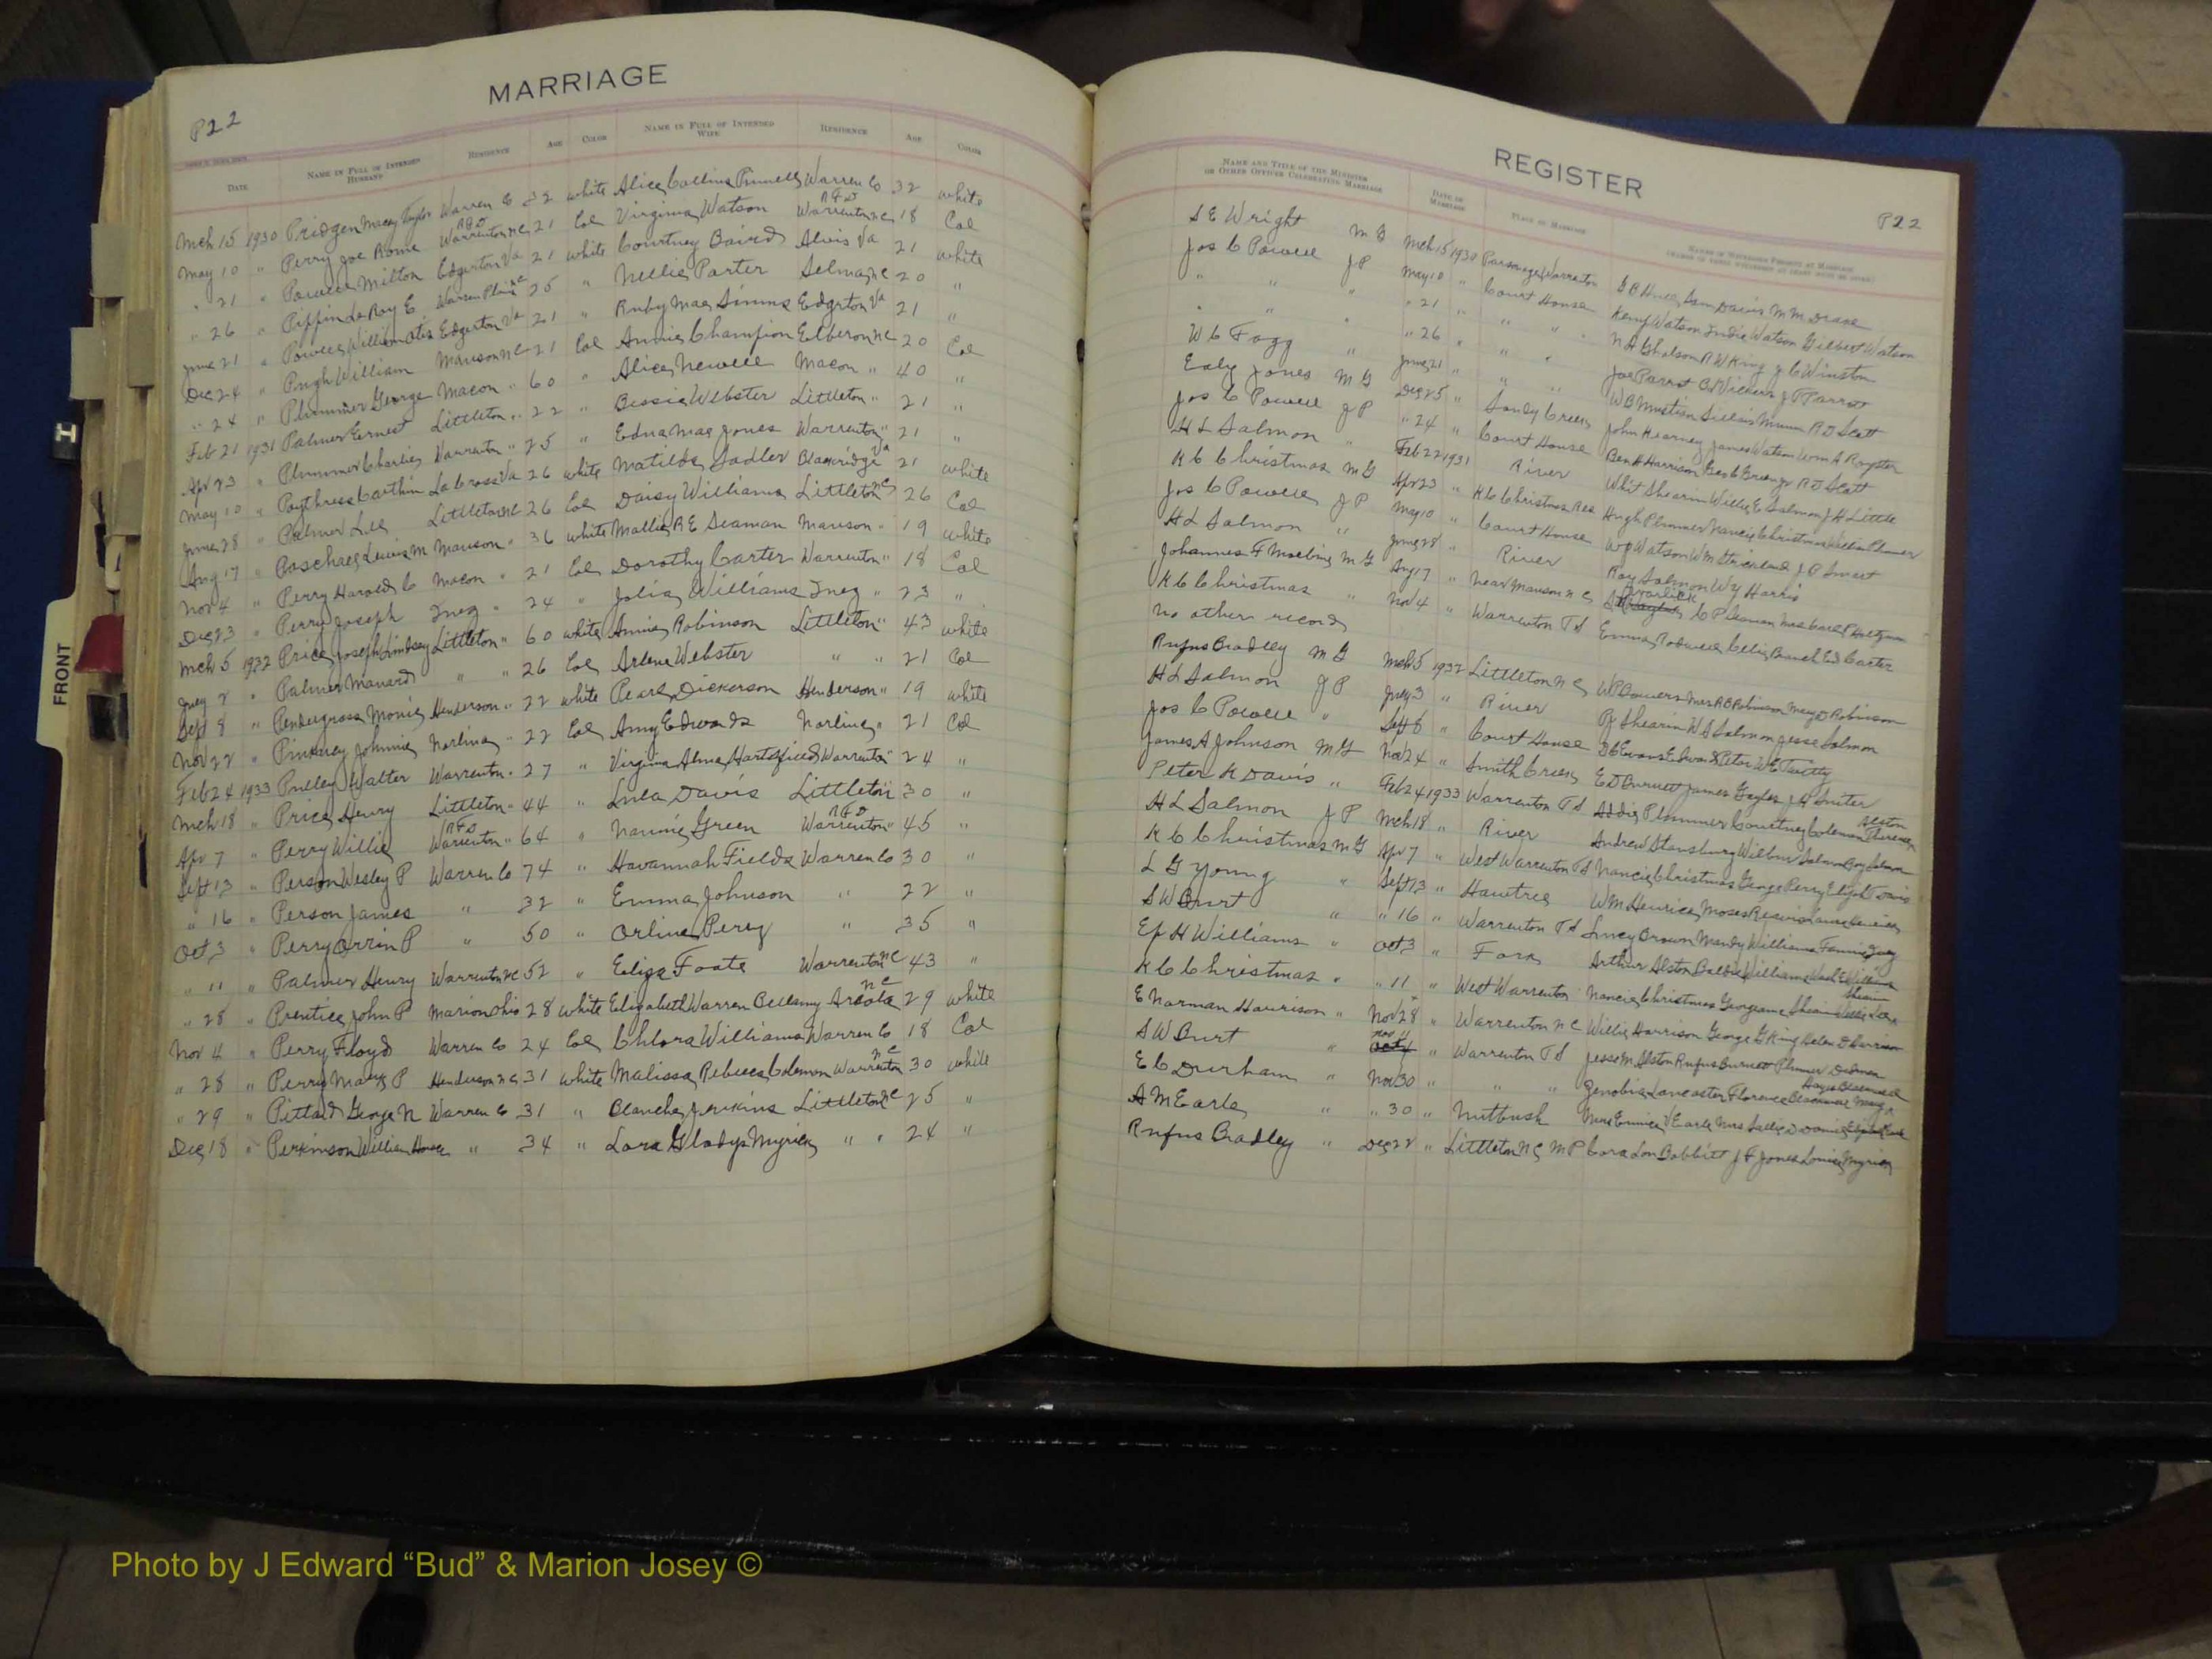 MARRIAGE
P22
DATE NAME IN FULL OF INTENDED HUSBAND RESIDENCE AGE COLOR NAME IN FULL OF INTENDED WIFE RESIDENCE AGE COLOR
Mch 15 1930 Pridgen Macey Taylor Warren Co 32 white Alice Collins Pinnell Warren Co 32 white
May 10 " Perry Joe Rome RFD Warrenton NC 21 Col Virginia Watson RFD Warrenton NC 18 Col
" 21 " Powell Milton Edgerton Va 21 white Courtney Baird Alvis Va 21 white
" 26 " Pippin La Roy E Warren Plains NC 25 " Nellie Porter Selma NC 20 "
June 21 " Powell William Otis Edgerton Va 21 " Ruby Mae Simms Edgerton Va 21 "
Dec 24 " Pugh William Manson NC 21 Col Annie Champion Elberon NC 20 Col
" 24 " Plummer George Macon " 60 " Alice Newell Macon " 40 "
Feb 21 1931 Palmer Earnest Littleton " 22 " Bessie Webster Littleton " 21 "
Apr 23 " Plummer Charlie Warrenton " 25 " Edna Mae Jones Warrenton " 21 "
May 10 " Poythress Carthin La Cross Va 26 white Matilda Sadler Blackridge Va 21 white
June 28 " Palmer Lee Littleton NC 26 Col Daisy Williams Littleton NC 26 Col
Aug 17 " Paschall Lewis M Manson " 36 white Mallie R E Seaman Manson " 19 white
Nov 4 " Perry Harold C Macon " 21 Col Dorothy Carter Warrenton " 18 Col
Dec 23 " Perry Joseph Inez " 24 " Julia Williams Inez " 23 "
Mch 5 1932 Price Joseph Lindsey Littleton " 60 white Annie Robinson Littleton " 43 white
July 2 " Palmer Manard " " 26 Col Arlene Webster " " 21 Col
Sept 8 " Pendergrass Monie Henderson " 22 white Pearl Dickerson Henderson " 19 white
Nov 22 " Pinkney Johnnie Norlina " 22 Col Amy Edwards Norlina " 21 Col
Feb 24 1933 Pulley Walter Warrenton " 27 " Virginia Alma Hartsfield Warrenton " 24 "
Mch 18 " Price Henry Littleton " 44 " Lula Davis Littleton " 30 "
Apr 7 " Perry Willie RFD Warrenton " 64 " Nannie Green RFD Warrenton " 45 "
Sept 13 " Person Wesley P Warren Co 74 " Havannah Fields Warren Co 30 "
" 16 " Person James " 32 " Emma Johnson " 22 "
Oct 3 " Perry Orrin P " 50 " Orline Perry " 35 "
" 11 " Palmer Henry Warrenton NC 52 " Eliza Foote Warrenton NC 43 "
" 28 " Prentice John P Marion Ohio 28 white Elizabeth Warren Bellamy Areola NC 29 white
Nov 4 " Perry Floyd Warren Co 24 Col Chlora Williams Warren Co 18 Col
" 28 " Perry P Henderson NC 31 white Malissa Rebecca Coleman Warrenton NC 30 white
" 29 " Pittard George N Warren Co 31 " Blanche Jenkins Littleton NC 25 "
Dec 18 " Perkinson William " 34 " Lora Gladys Myrick " " 24 "
REGISTER
P22
NAME AND TITLE OF THE MINISTER OR OTHER OFFICER CELEBRATING MARRIAGE DATE OF MARRIAGE PLACE OF MARRIAGE
S E Wright M G Mch 15 1930 Parsonage Warrenton Sam Davis M M Drake
Jos C Powell J P May 10 " Court House Kemp Watson Watson Gilbert Watson
" " " " 21 " " " " N H Gholson R W King J C Winston
" " " " 26 " " " " Joe Parrot Parrott
W C Fogg " June 21 " " " " W B Mustian R D Scott
Early Jones M G Dec 25 " Sandy Creek John Kearney James Watson Wm A Royster
Jos C Powell J P " 24 " Court House Ben H Harrison R D Scott
H L Salmon " Feb 22 1931 River Whit Shearin Willie E Salmon J H Little
K C Christmas M G Apr 23 " K C Christmas Res Hugh Plummer Nancie Christmas Plummer
Jos C Powell J P May 10 " Court House Watson Wm Strickland
H L Salmon " June 28 " River Roy Salmon W Y Harris
Johannes F Moelling M G Aug 17 " near Manson NC
K C Christmas " Nov 4 " Warrenton Td Emma Branch Ed Carter
No other record
Rufus Bradley M G Mch 5 1932 Littleton NC Mrs R B Robinson Robinson
H L Salmon J P July 3 " River Shearin W S Salmon Jesse Salmon
Jos C Powell " Sept 8 " Court House
James A Johnson M G Nov 24 " Smith Creek E D Burnett James
Peter R Davis " Feb 24 1933 Warrenton Td Addie Plummer Courtney Coleman Alston
H L Salmon J P Mch 18 " River Andrew Stansbury Wilbur Salmon Roy Salmon
K C Christmas M G Apr 7 " West Warrenton Td Nancie Christmas George Perry
L G Young " Sept 13 " Hawtree Wm Henrice Moses
S W Burt " " 16 " Warrenton Td Lucy Brown Mandy Williams
Ep H Williams " Oct 3 " Fork Arthur Alston Williams
K C Christmas " " 11 " West Warrenton Nancie Christmas
E Norman Harrison " Nov 28 " Warrenton NC Willie Harrison George G King Helen D Harrison
S W Burt " Nov 4 " Warrenton Td Jesse M Alston Rufus Burnett
E C Durham " Nov 30 " " " Zenobia Lancaster Florence
A M Earle " " 30 " Nutbush Mrs Eunice V Earle Mrs Sallie D
Rufus Bradley " Dec 22 " Littleton NC M P Cora Lou Bobbitt J F Jones Louise Myrick
FRONT
H
Photo by J Edward “Bud” & Marion Josey ©